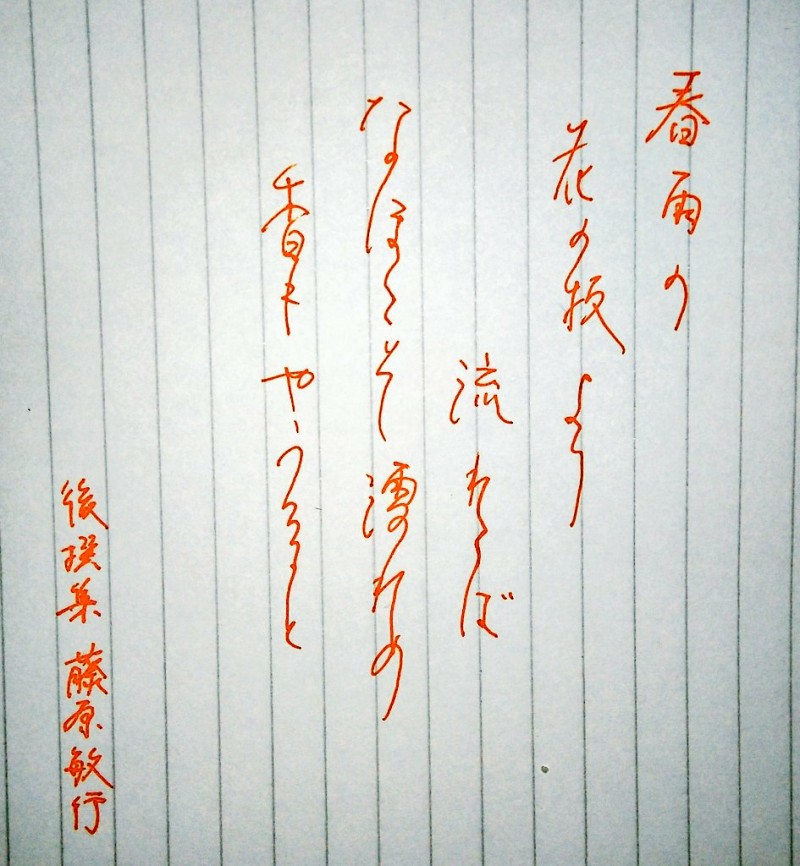 春雨の
花の枝より
流れこば
なほこそ濡れめ
香もやうつると
後撰集 藤原敏行